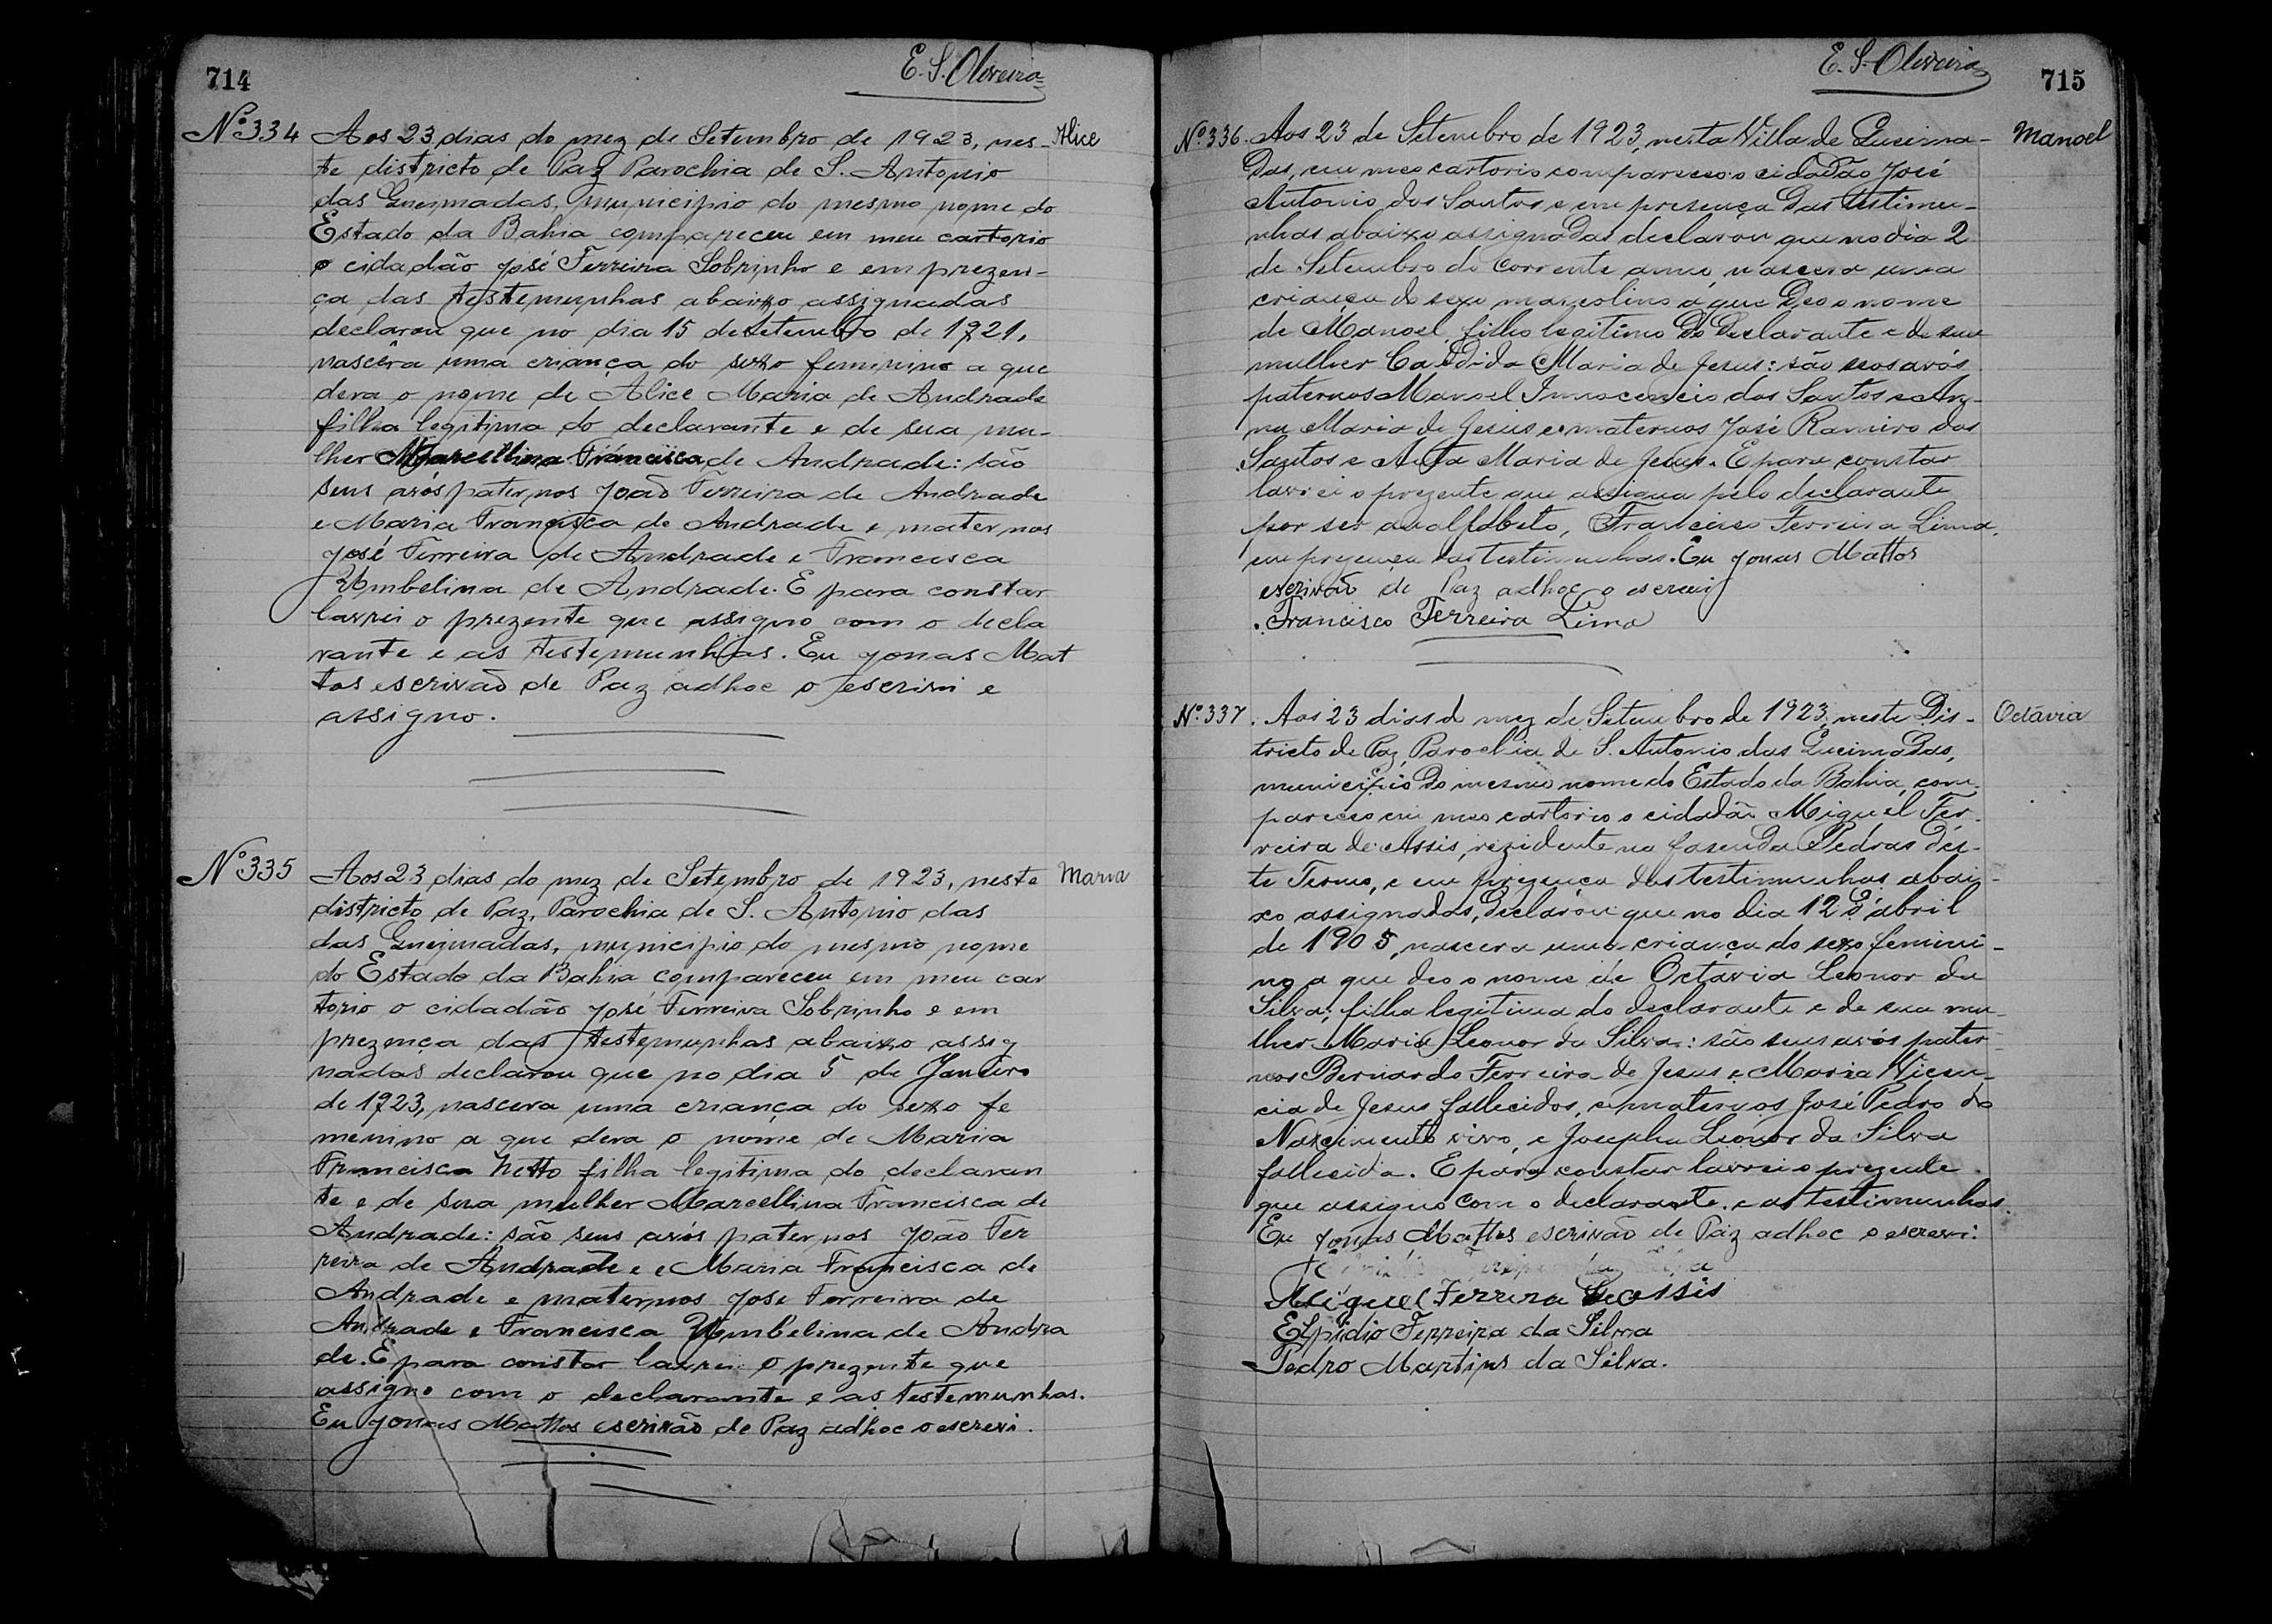 714
E. S. Oliveira
Nº 334
Alice
Aos 23 dias do mez de Setembro de 1923, nes-
te districto de Paz Parochia de S. Antonio
das Queimadas, municipio do mesmo nome do
Estado da Bahia compareceu em meu cartorio
o cidadão José Ferreira Sobrinho e em prezen-
ça das testemunhas abaixo assignadas
declarou que no dia 15 de Setembro de 1921,
nascêra uma criança do sexo feminino a que
dera o nome de Alice Maria de Andrade
filha legitima do declarante e de sua mu-
lher Marcellina Francisca de Andrade: são
seus avós paternos João Ferreira de Andrade
e Maria Francisca de Andrade e maternos
José Ferreira de Andrade e Francisca
Umbelina de Andrade. E para constar
lavrei o prezente que assigno com o decla
rante e as testemunhas. Eu Jonas Mat
tos escrivão de Paz adhoc o escrivi e
assigno.
Nº 335
Maria
Aos 23 dias do mez de Setembro de 1923, neste
districto de Paz, Parochia de S. Antonio das
das Queimadas, municipio do mesmo nome
do Estado da Bahia compareceu em meu car
torio o cidadão José Ferreira Sobrinho e em
prezença das testemunhas abaixo assig
nadas declarou que no dia 5 de Janeiro
de 1923, nascera uma criança do sexo fe
menino a que dera o nome de Maria
Francisca Netto filha legitima do declaran
te e de sua mulher Marcellina Francisca de
Andrade: são seus avós paternos João Fer
reira de Andrade e e Maria Francisca de
Andrade e maternos José Ferreira de
Andrade e Francisca Umbelina de Andra
de. E para constar lavrei o prezente que
assigno com o declarante e as testemunhas.
Eu Jonas Mattos escrivão de Paz adhoc o escrevi.
E. S. Oliveira
715
Nº 336.
Manoel
Aos 23 de Setembro de 1923, nesta Villa de Queima-
das, em meo cartorio compareceo o cidadão José
Antonio dos Santos e em presença das testimu-
nhas abaixo assignadas declarou que no dia 2
de Setembro do corrente anno, nascera uma
criança do sexo mascolino a que deo o nome
de Manoel, filho legitimo do declarante e de sua
mulher Candida Maria de Jesus: são seos avós
paternos Manoel Innocencio dos Santos e An-
na Maria de Jesus e maternos José Ramiro dos
Santos e Maria de Jesus. E para constar
lavrei o prezente que assigna pelo declarante
por ser analfabeto, Francisco Ferreira Lima,
em prezença das testimunhas. Eu Jonas Mattos
escrivão de Paz adhoc o escrevi
Francisco Ferreira Lima
Nº 337.
Octavia
Aos 23 dias do mez de Setembro de 1923, neste Dis-
tricto de Paz, Parochia de S. Antonio das Queimadas,
municipio do mesmo nome do Estado da Bahia, com-
pareceo em meo cartorio o cidadão Miguel Fer-
reira de Assis, rezidente na fasenda Pedras des-
te Termo, e em prezença das testimunhas abai-
xo assignadas, declarou que no dia 12 d'abril
de 1905, nascera uma criança do sexo femini-
no a que deo o nome de Octavia Leonor da
Silva, filha legitima do declarante e de sua mu-
lher Maria Leonor da Silva: são seus avós pater-
nos Bernardo Ferreira de Jesus e Maria Vicen-
cia de Jesus fallecidos, e maternos José Pedro do
Nascimento vivo, e Josepha Leonor da Silva
fallecida. E para constar lavrei o prezente
que assigno com o declarante e as testimunhas.
Eu Jonas Mattos escrivão de Paz adhoc o escrevi:
Miguel Ferreira de Assis
Elpidio Ferreira da Silva
Pedro Martins da Silva.